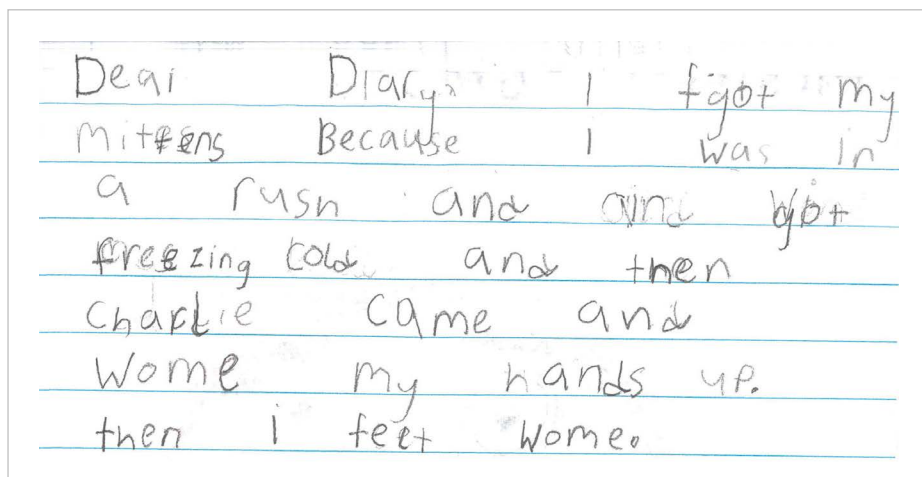 Dear Diary, I fgot my
mittens Because I was in
a rush and and got
freezing cold and then
Charlie came and
Wome my hands up.
then i feet Wome.